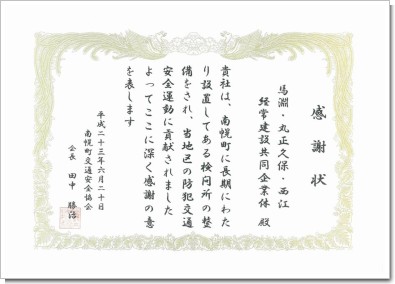 感謝状
馬淵・丸正久保・西江
経常建設共同企業体 殿
貴社は、南幌町に長期にわた
り設置してある検問所の整
備をされ、当地区の防犯交通
安全運動に貢献されました
よってここに深く感謝の意
を表します
平成二十三年六月二十日
南幌町交通安全協会
会長 田中 勝治